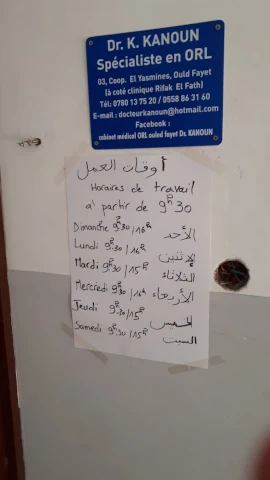 Dr. K. KANOUN
Spécialiste en ORL
03, Coop. El Yasmines, Ould Fayet
(à coté clinique Rifak El Fath)
Tél: 0780 13 75 20 / 0558 86 31 60
E-mail : docteurkanoun@hotmail.com
Facebook :
cabinet médical ORL ouled fayet Dr. KANOUN
أوقات العمل
Horaires de travail
a' partir de 9h30
Dimanche 9h30/16h الأحد
Lundi 9h30/16h الإثنين
Mardi 9h30/15h الثلاثاء
Mercredi 9h30/16h الأربعاء
Jeudi 9h30/15h الخميس
Samedi 9h30/15h السبت